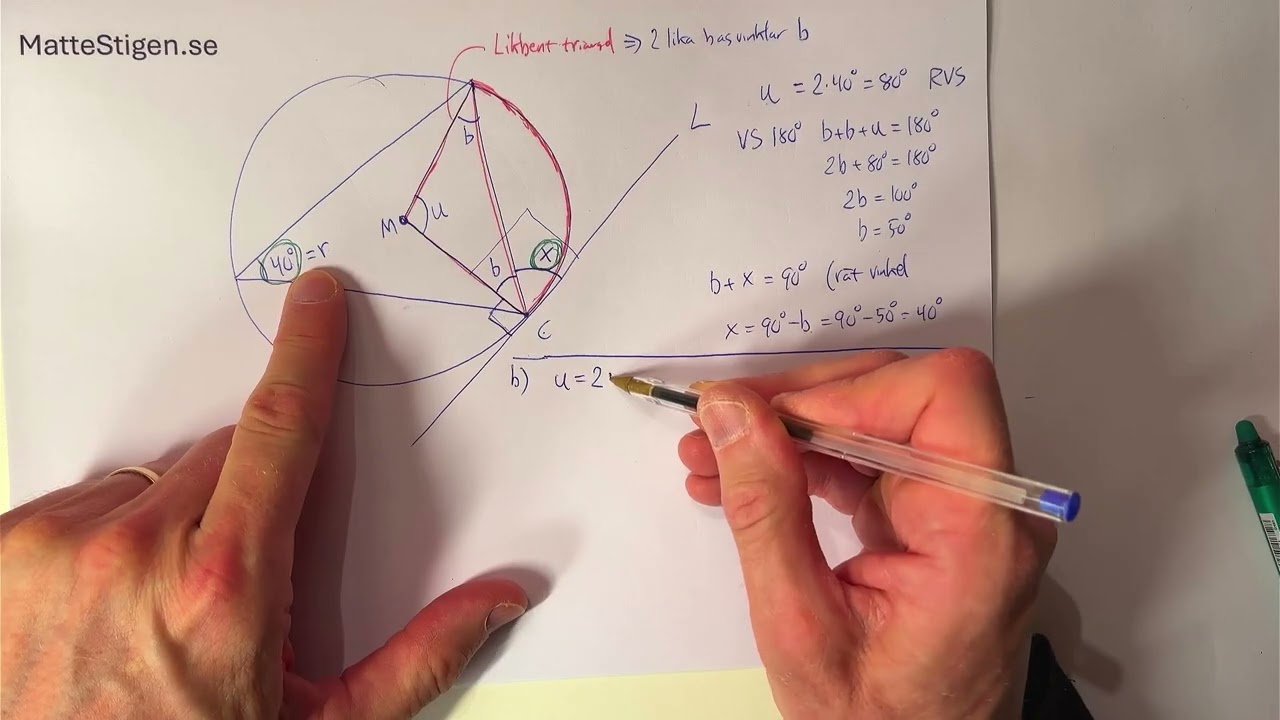 MatteStigen.se
Likbent triangel => 2 lika basvinklar b
u = 2·40° = 80° RVS
VS 180° b+b+u = 180°
2b + 80° = 180°
2b = 100°
b = 50°
b + x = 90° (rät vinkel
x = 90° - b = 90° - 50° = 40°
b) u = 2
L
b
M
u
40° = r
b
x
C